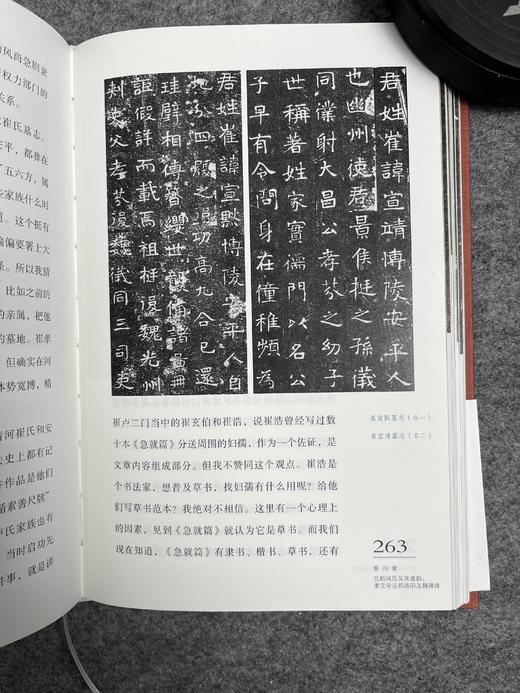 风尚急剧衰
权力部门的
关系。
崔氏墓志。
安平，都葬在
“五六方，属
些家族什么时
道。这个挺有
偏偏要署上大
怪。所以我猜
比如之前的
的亲属，把他
的墓地。崔孝
但确实在河
体势宽博，精
清河崔氏和安
去史上都有记
件作品是他们
循素善尺牍”
卢氏家族也有
当时启功先
件事，就是讲
君姓崔諱宣靖博陵安平人
也幽州使君景儁挺之孫儀
同僕射大昌公孝芬之幼子
世稱著姓家實儒門以名公
子早有令問身在僮稚頻為
君姓崔諱宣默博陵安平人自
地分四履之功高九合已還
珪璧相傳簪纓世襲備諸
詎假詳而載焉祖挺後魏光州
刺史父孝芬後魏儀同三司吏
崔宣默墓志（右一）
崔宣靖墓志（右二）
崔卢二门当中的崔玄伯和崔浩，说崔浩曾经写过数
十本《急就篇》分送周围的妇孺，作为一个佐证，是
文章内容组成部分。但我不赞同这个观点。崔浩是
个书法家，想普及草书，找妇孺有什么用呢？给他
们写草书范本？我绝对不相信。这里有一个心理上
的因素，见到《急就篇》就认为它是草书，而我们
现在知道，《急就篇》有隶书、楷书、草书，还有
263
第四章
北朝风范及其遗韵：
孝文帝迁都洛阳及魏碑体